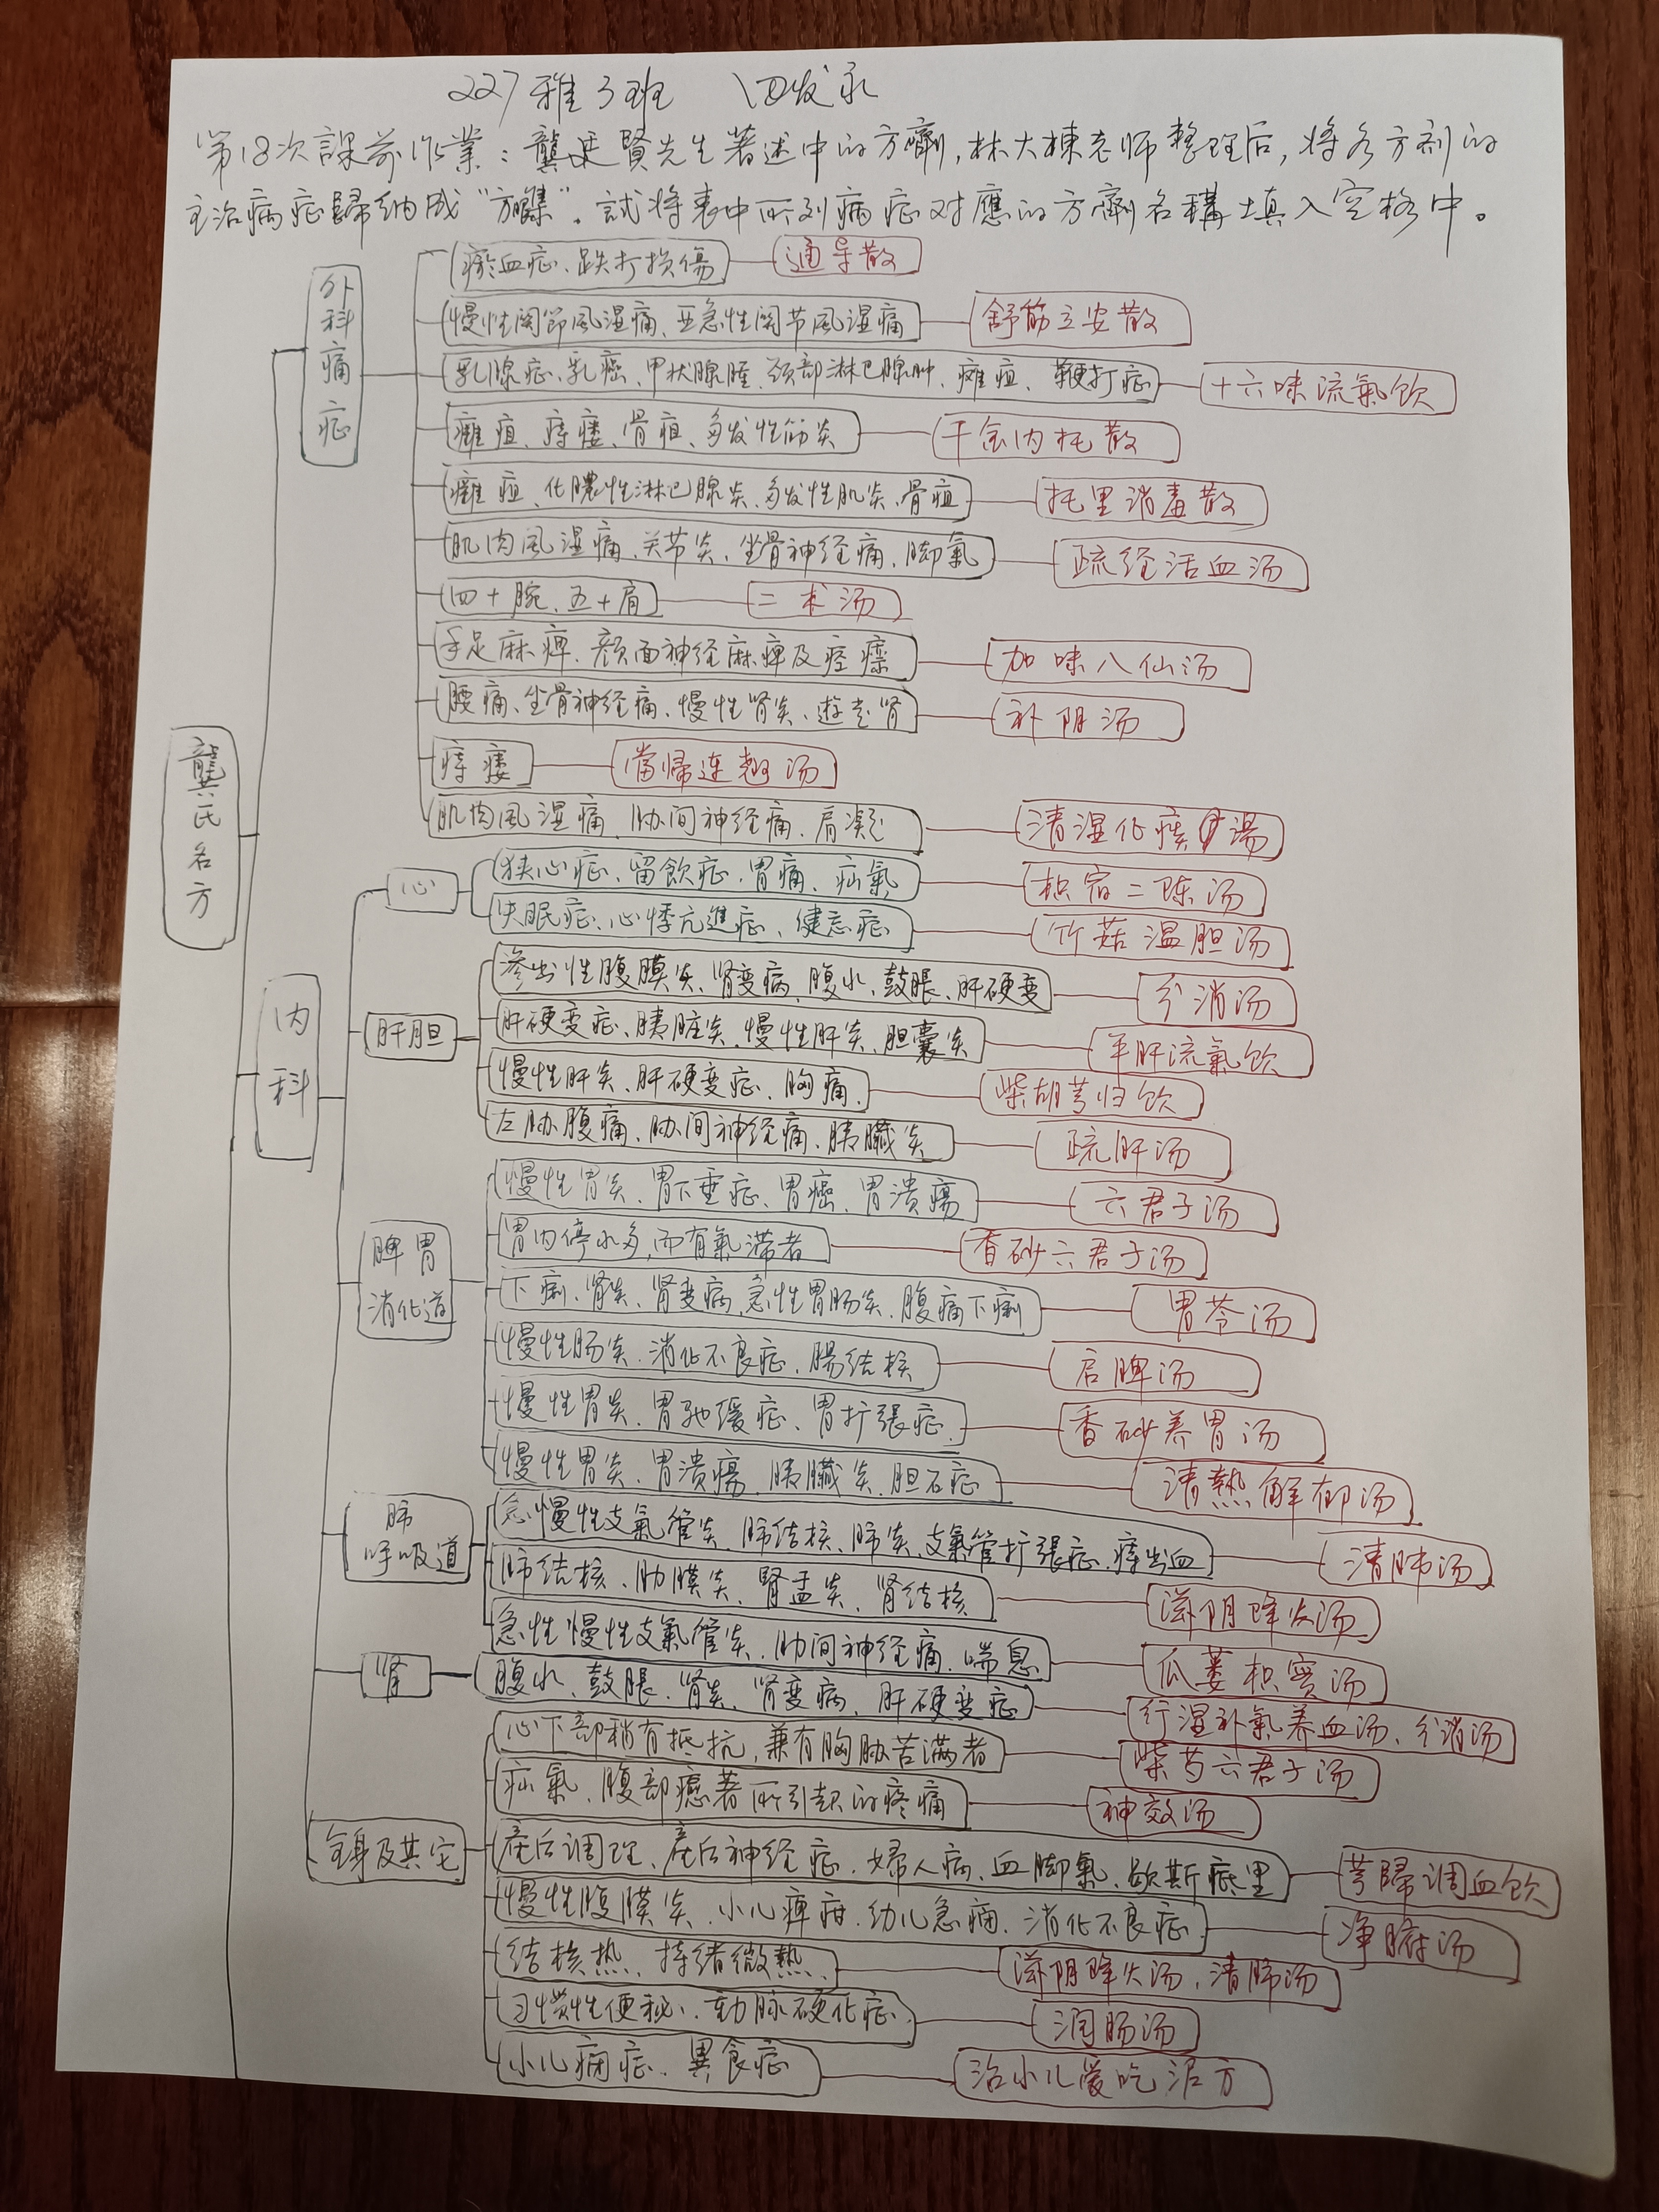 227雅3班
第18次課前作業：龔廷賢先生著述中的方劑，林大棟老师整理后，将各方剂的
主治病症歸纳成“方集”。試将表中所列病症对應的方劑名稱填入空格中。
龔氏名方
外科痛症
瘀血症、跌打损傷 通导散
慢性関節風湿痛、亚急性関节風湿痛 舒筋立安散
乳腺症、乳癌、甲状腺腫、頚部淋巴腺肿、癰疽、鞭打症 十六味流氣飲
癰疽、痔瘘、骨疽、多发性筋炎 千金内托散
癰疽、化膿性淋巴腺炎、多发性肌炎、骨疽 托里消毒散
肌肉風湿痛、关节炎、坐骨神经痛、脚氣 疏经活血汤
四十腕、五十肩 二术汤
手足麻痺、顔面神经麻痺及痉攣 加味八仙汤
腰痛、坐骨神经痛、慢性肾炎、遊走肾 补阴汤
痔瘘 當帰连翘汤
肌肉風湿痛、肋间神经痛、肩凝 清湿化痰湯
内科
心
狭心症、留飲症、胃痛、疝氣 枳缩二陈汤
失眠症、心悸亢進症、健忘症 竹茹温胆汤
肝胆
渗出性腹膜炎、肾变病、腹水、鼓脹、肝硬变 分消汤
肝硬变症、胰脏炎、慢性肝炎、胆囊炎 平肝流氣饮
慢性肝炎、肝硬变症、胸痛、 柴胡芎归饮
左胁腹痛、肋间神经痛、胰臟炎 疏肝汤
脾胃
消化道
慢性胃炎、胃下垂症、胃癌、胃潰瘍 六君子汤
胃内停水多，而有氣滞者 香砂六君子汤
下痢、肾炎、肾变病、急性胃肠炎、腹痛下痢 胃苓汤
慢性肠炎、消化不良症、腸结核 启脾汤
慢性胃炎、胃弛缓症、胃扩張症、 香砂养胃汤
慢性胃炎、胃潰瘍、胰臟炎、胆石症 清熱解郁汤
肺
呼吸道
急慢性支氣管炎、肺结核、肺炎、支氣管扩張症、痔出血 清肺汤
肺结核、肋膜炎、腎盂炎、肾结核 滋阴降火汤
急性慢性支氣管炎、肋间神经痛、喘息 瓜蒌枳實汤
肾
腹水、鼓脹、肾炎、肾变病、肝硬变症 行湿补氣养血汤、分消汤
全身及其它
心下部稍有抵抗，兼有胸胁苦满者 柴芍六君子汤
疝氣、腹部癒著所引起的疼痛 神效汤
産后调理、産后神经症、婦人病、血脚氣、歇斯底里 芎歸调血饮
慢性腹膜炎、小儿痺疳、幼儿急痛、消化不良症、 净腑汤
结核热、持续微熱、 滋阴降火汤，清肺汤
习惯性便秘、動脉硬化症 润肠汤
小儿疳症、異食症 治小儿爱吃泥方